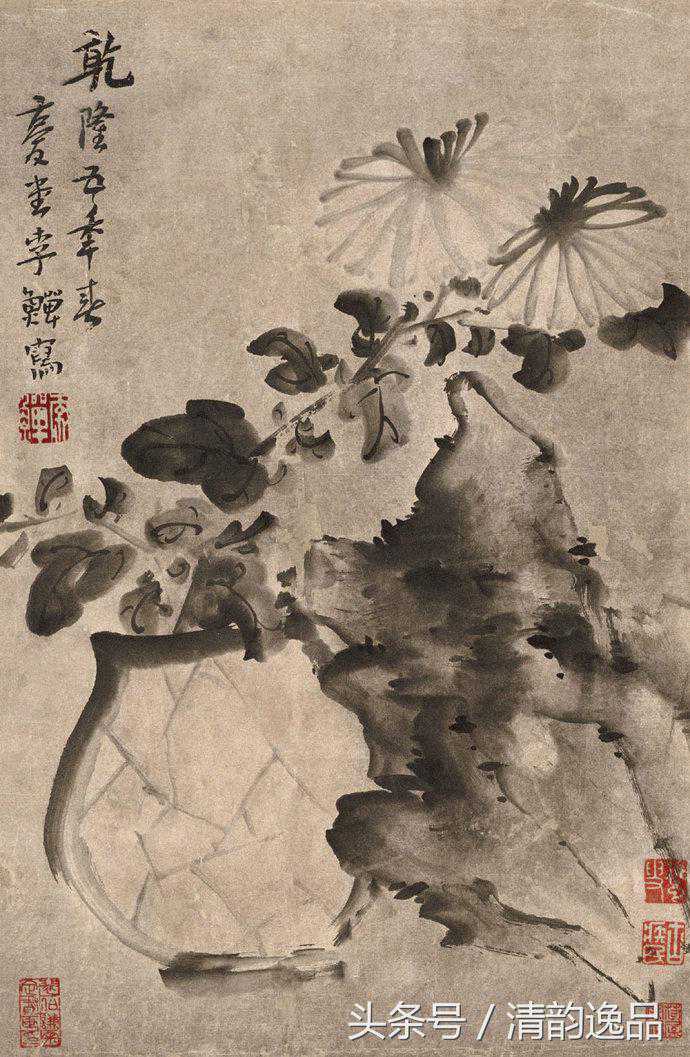 乾隆五年春
复堂李鱓寫
头条号 / 清韵逸品